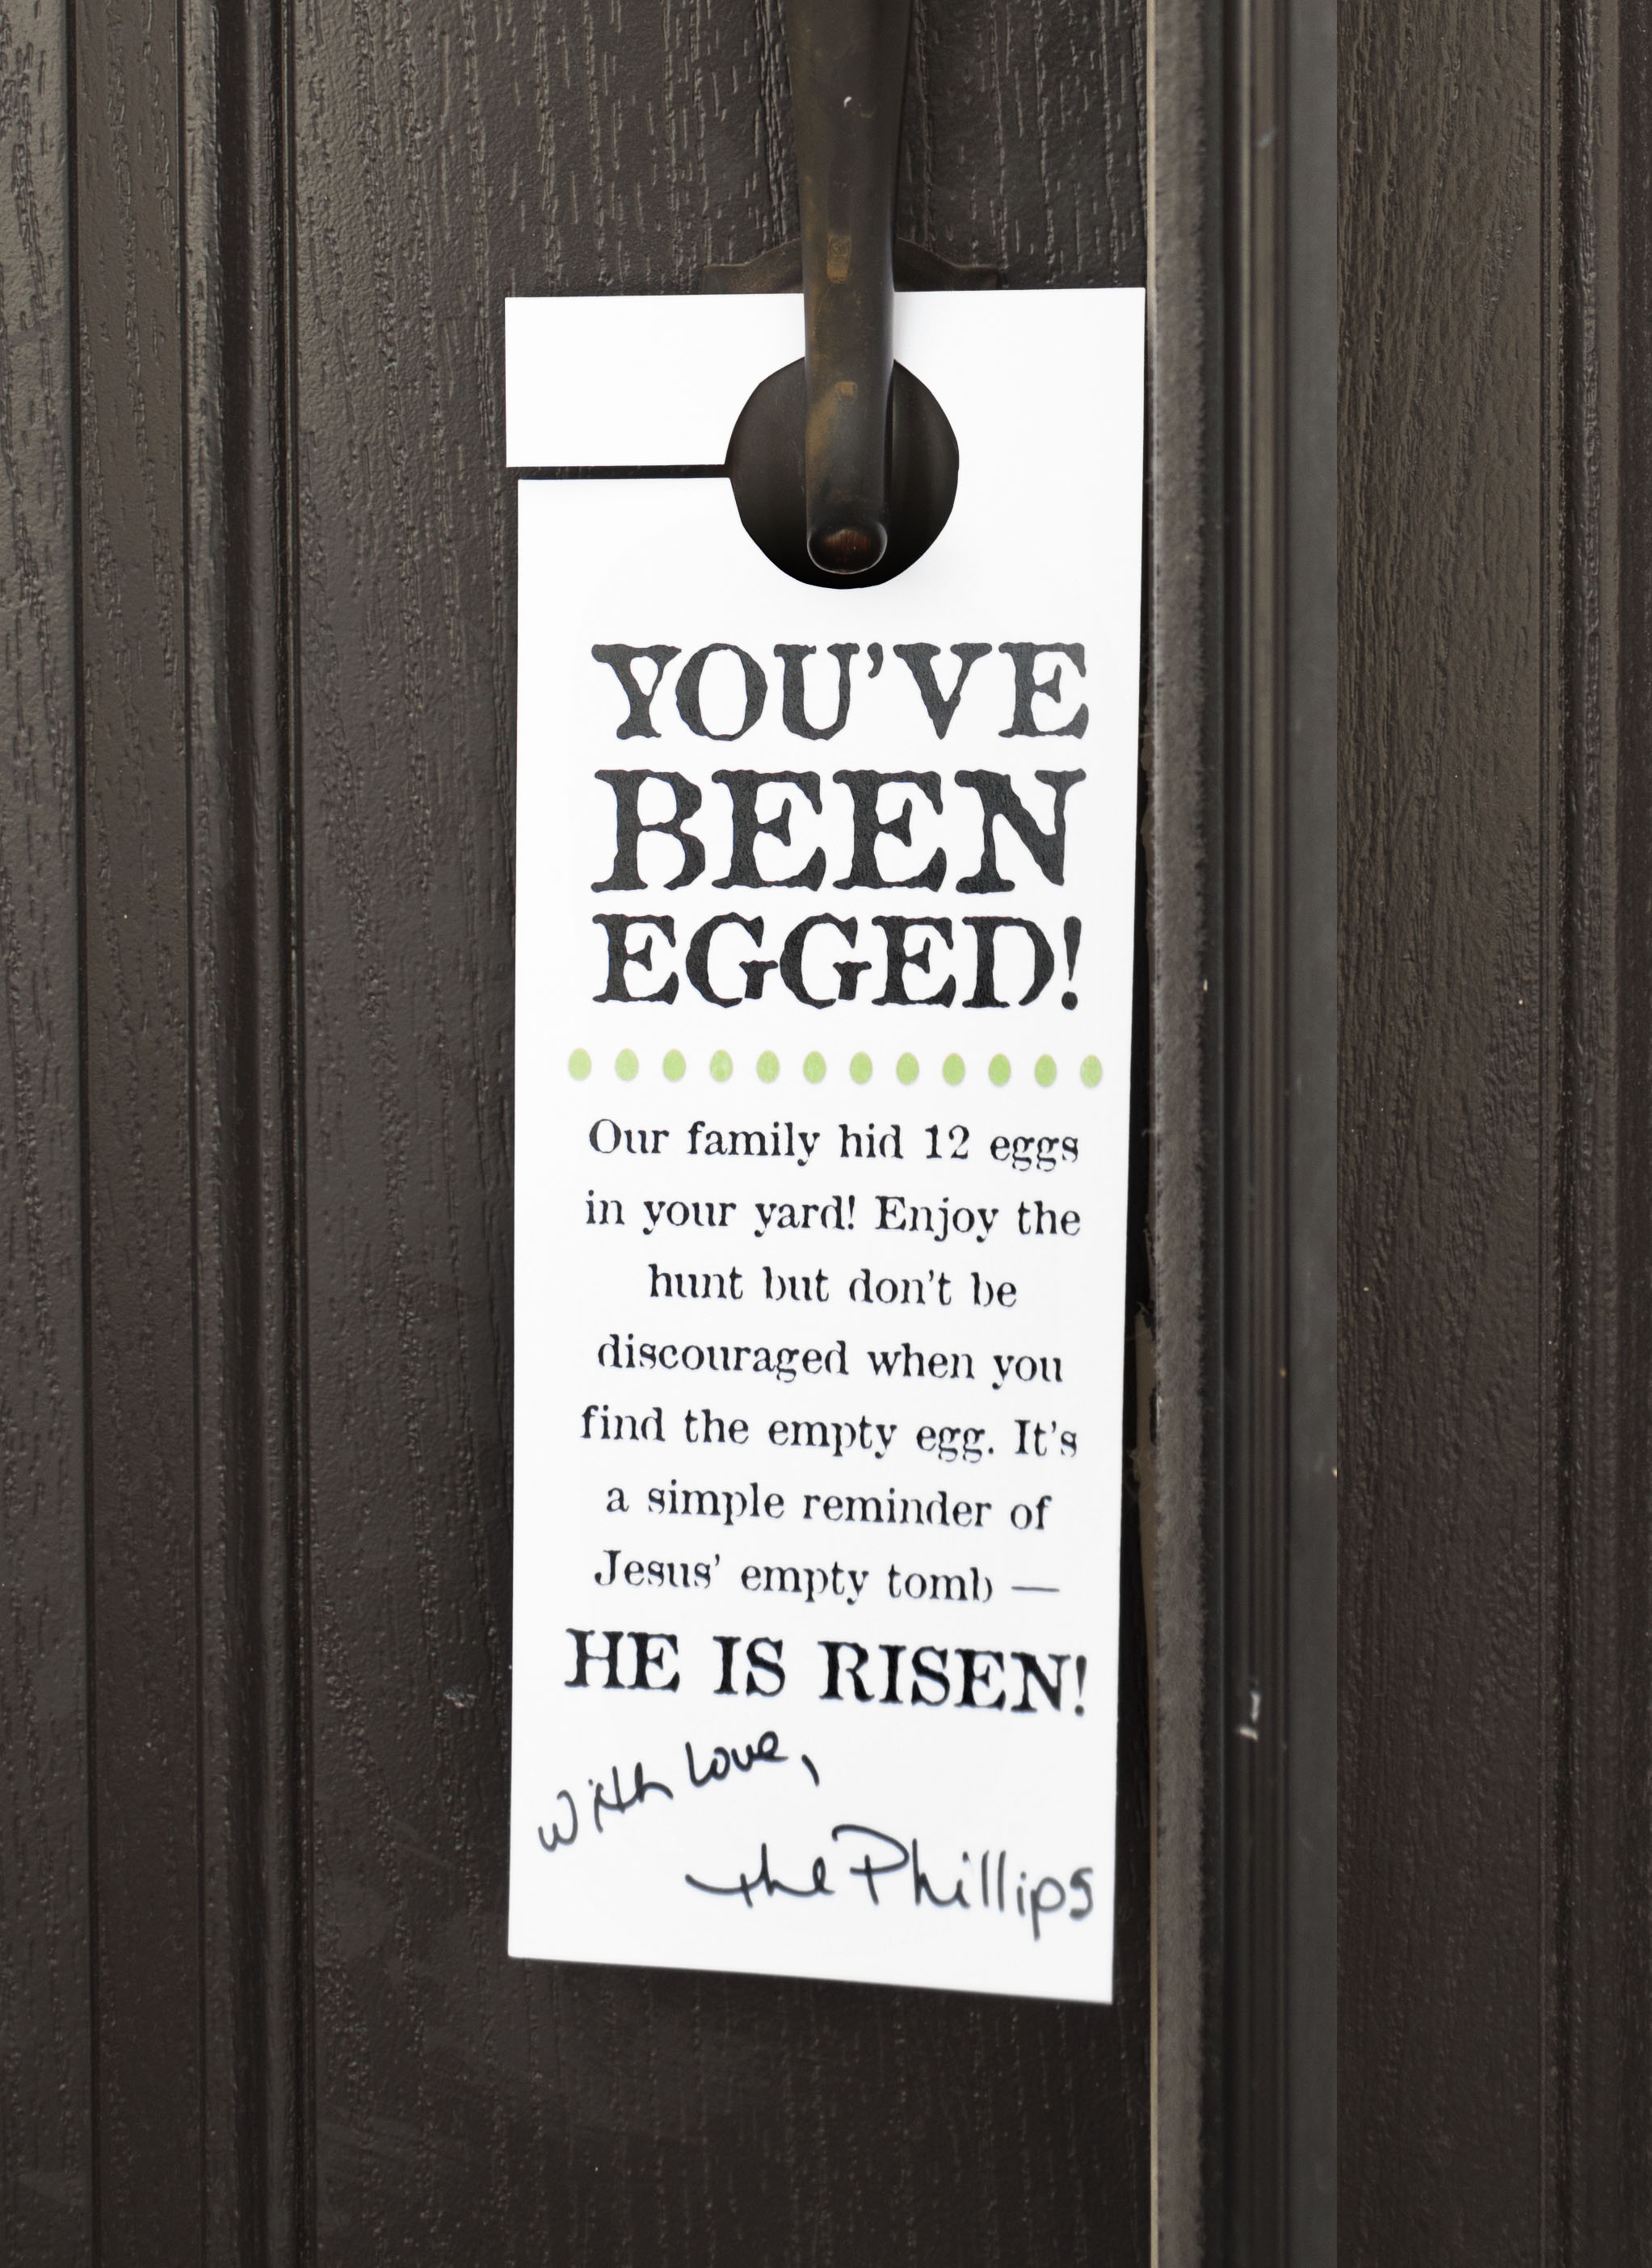 YOU'VE
BEEN
EGGED!
Our family hid 12 eggs
in your yard! Enjoy the
hunt but don't be
discouraged when you
find the empty egg. It's
a simple reminder of
Jesus' empty tomb —
HE IS RISEN!
With love,
the Phillips